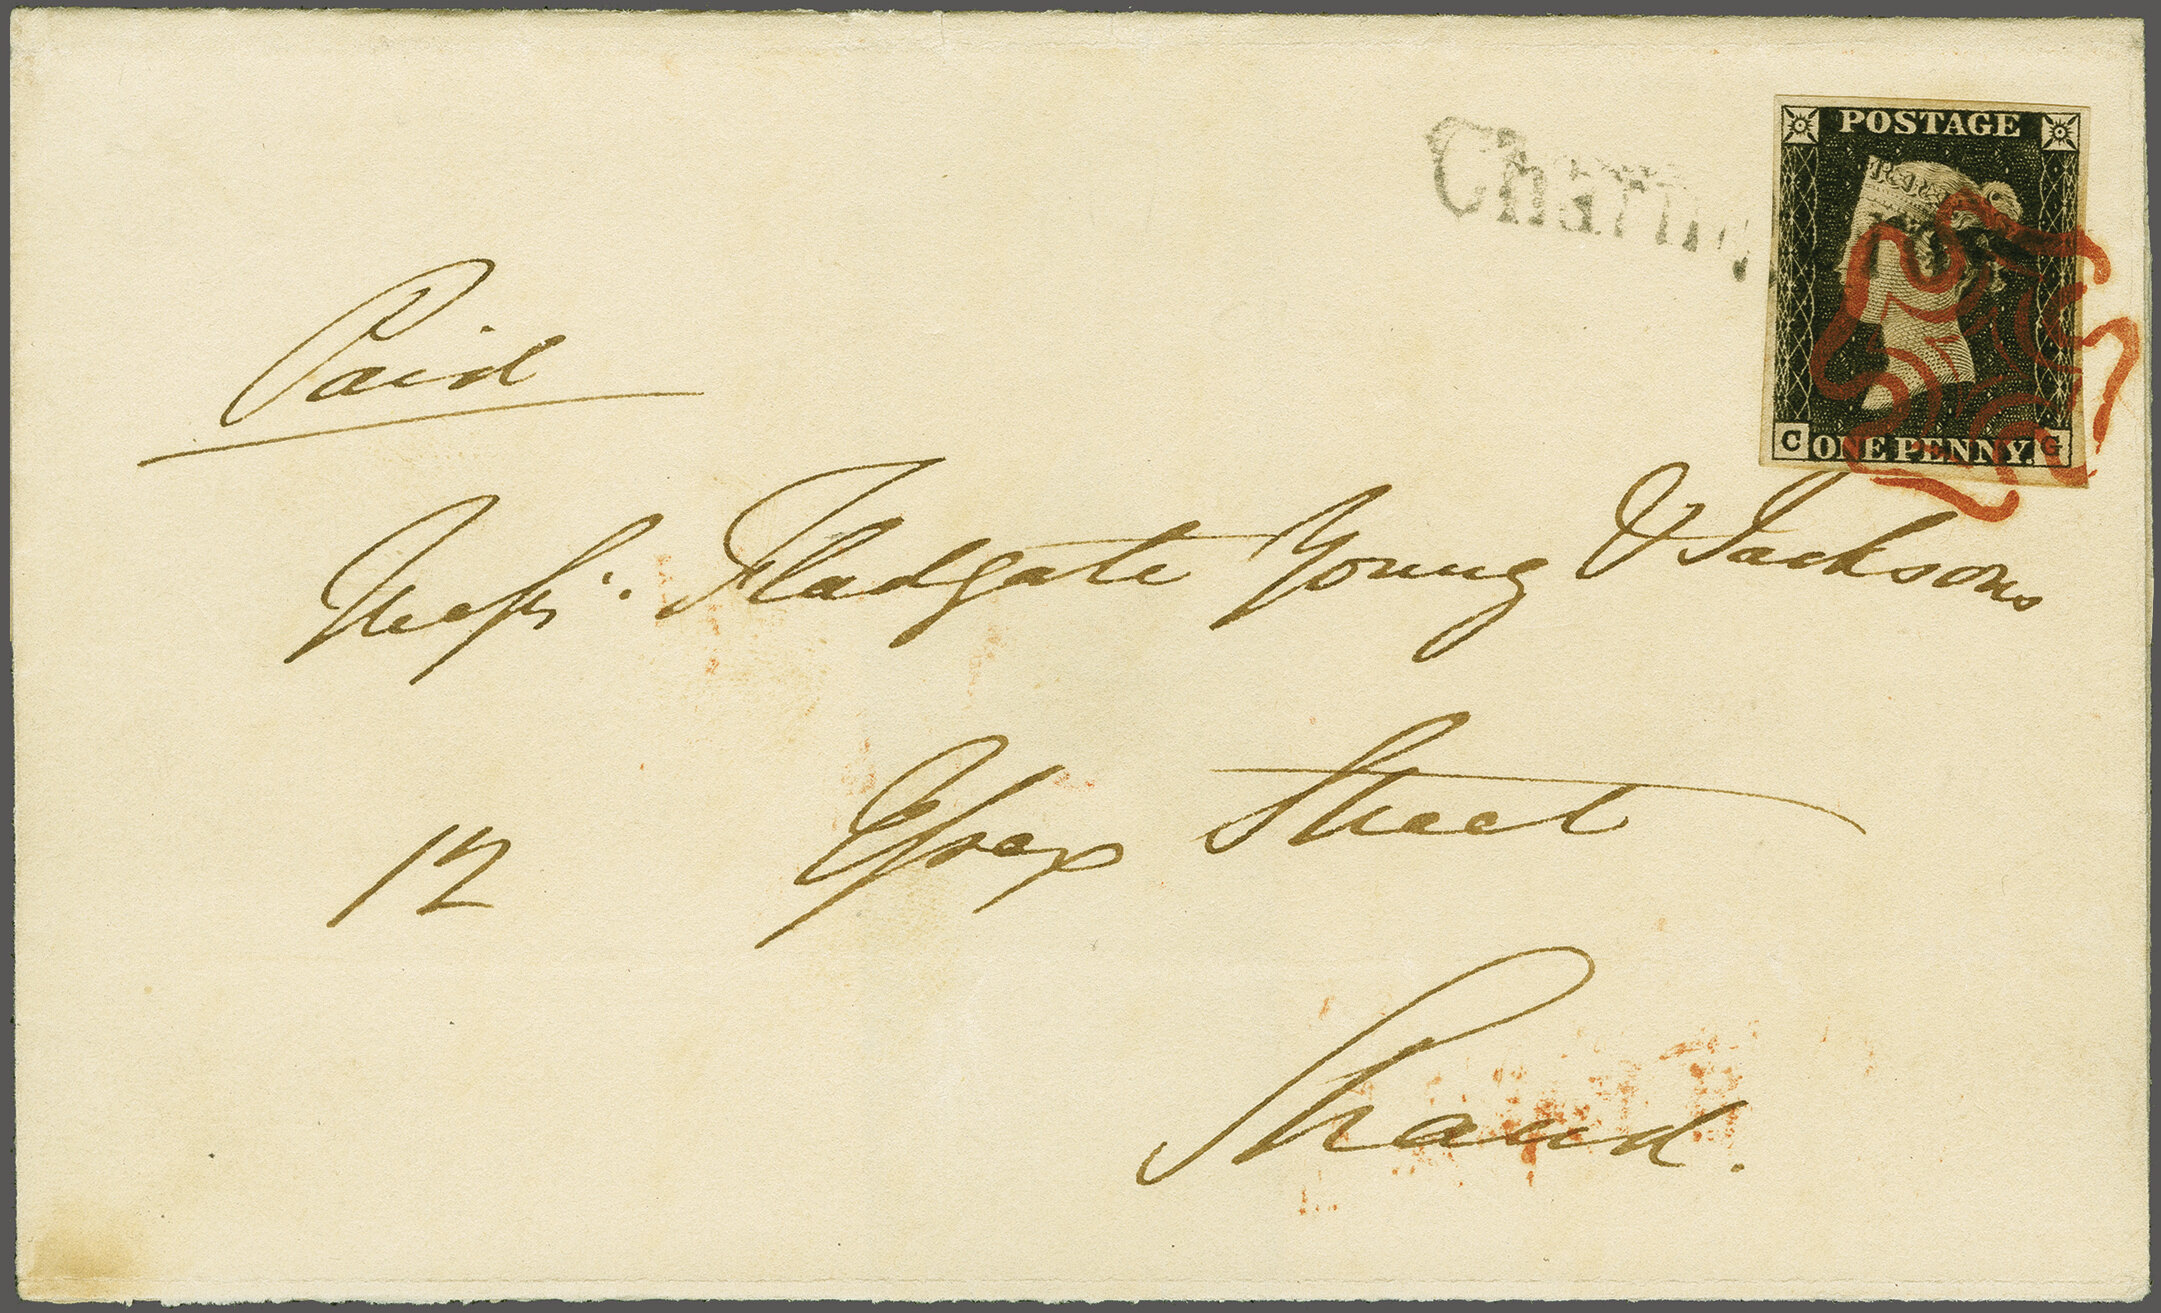 Charing
POSTAGE
C ONE PENNY. G
Paid
Messrs. Fladgate Young & Jacksons
12 Essex Street
Strand.